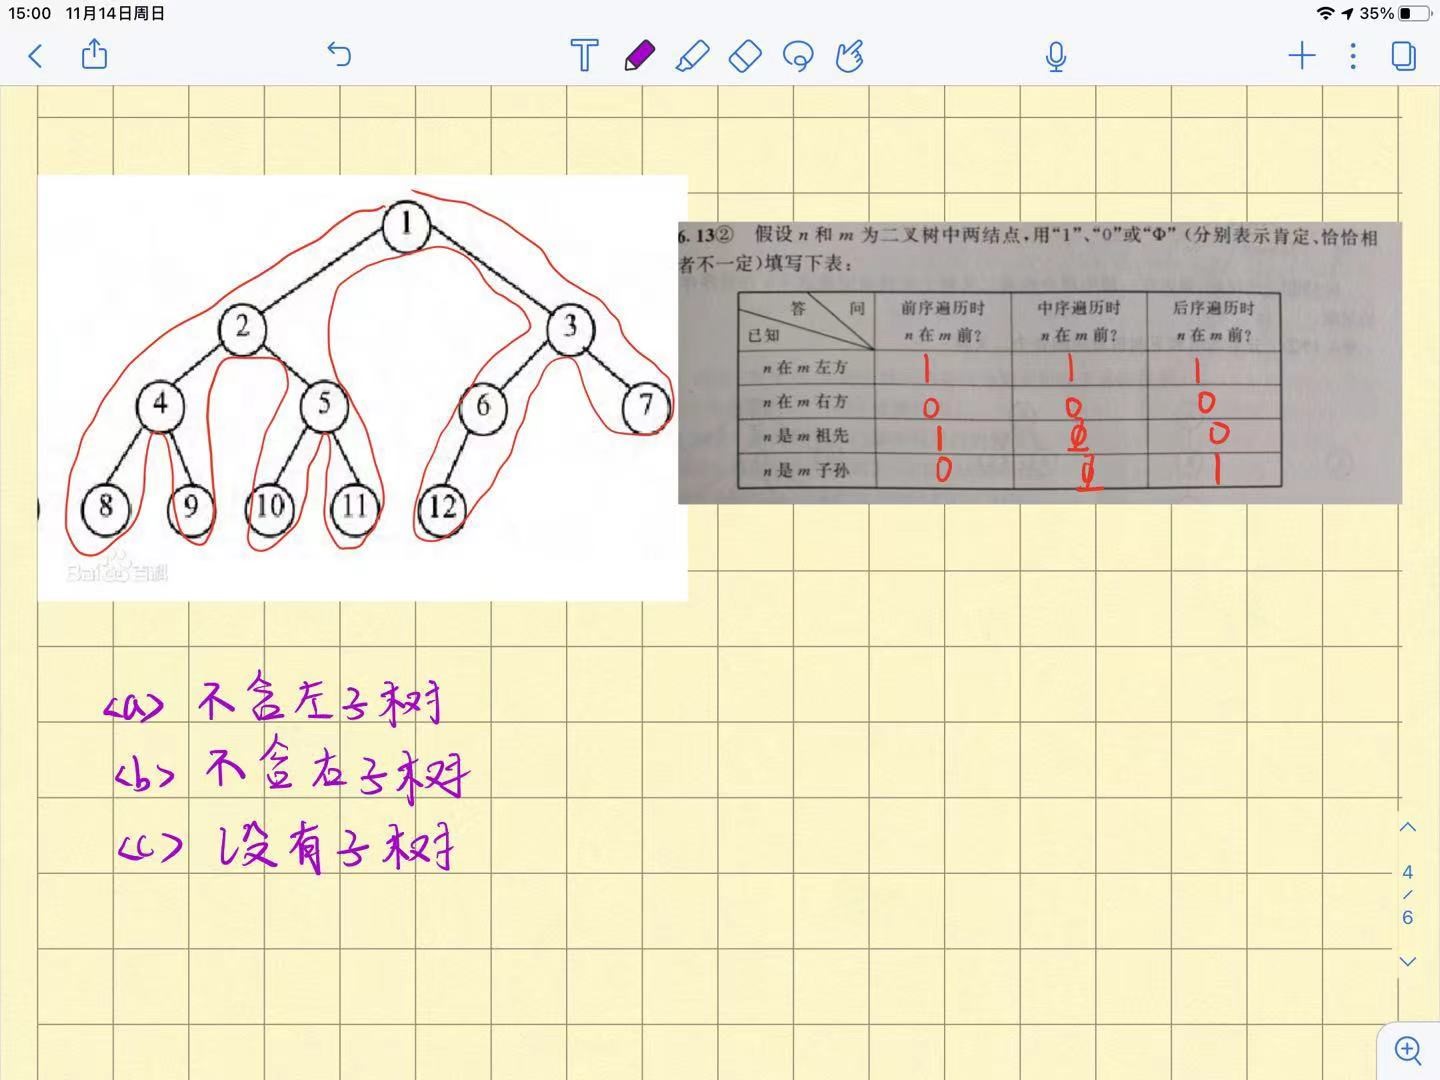 15:00 11月14日周日
35%
1
2
3
4
5
6
7
8
9
10
11
12
Bai百科
6.13② 假设 n 和 m 为二叉树中两结点,用“1”、“0”或“Φ”(分别表示肯定、恰恰相
者不一定)填写下表:
答 问
已知
前序遍历时
n 在 m 前?
中序遍历时
n 在 m 前?
后序遍历时
n 在 m 前?
n 在 m 左方 1 1 1
n 在 m 右方 0 0 0
n 是 m 祖先 1 Φ 0
n 是 m 子孙 0 Φ 1
<a> 不含左子树
<b> 不含右子树
<c> 没有子树
4
/
6